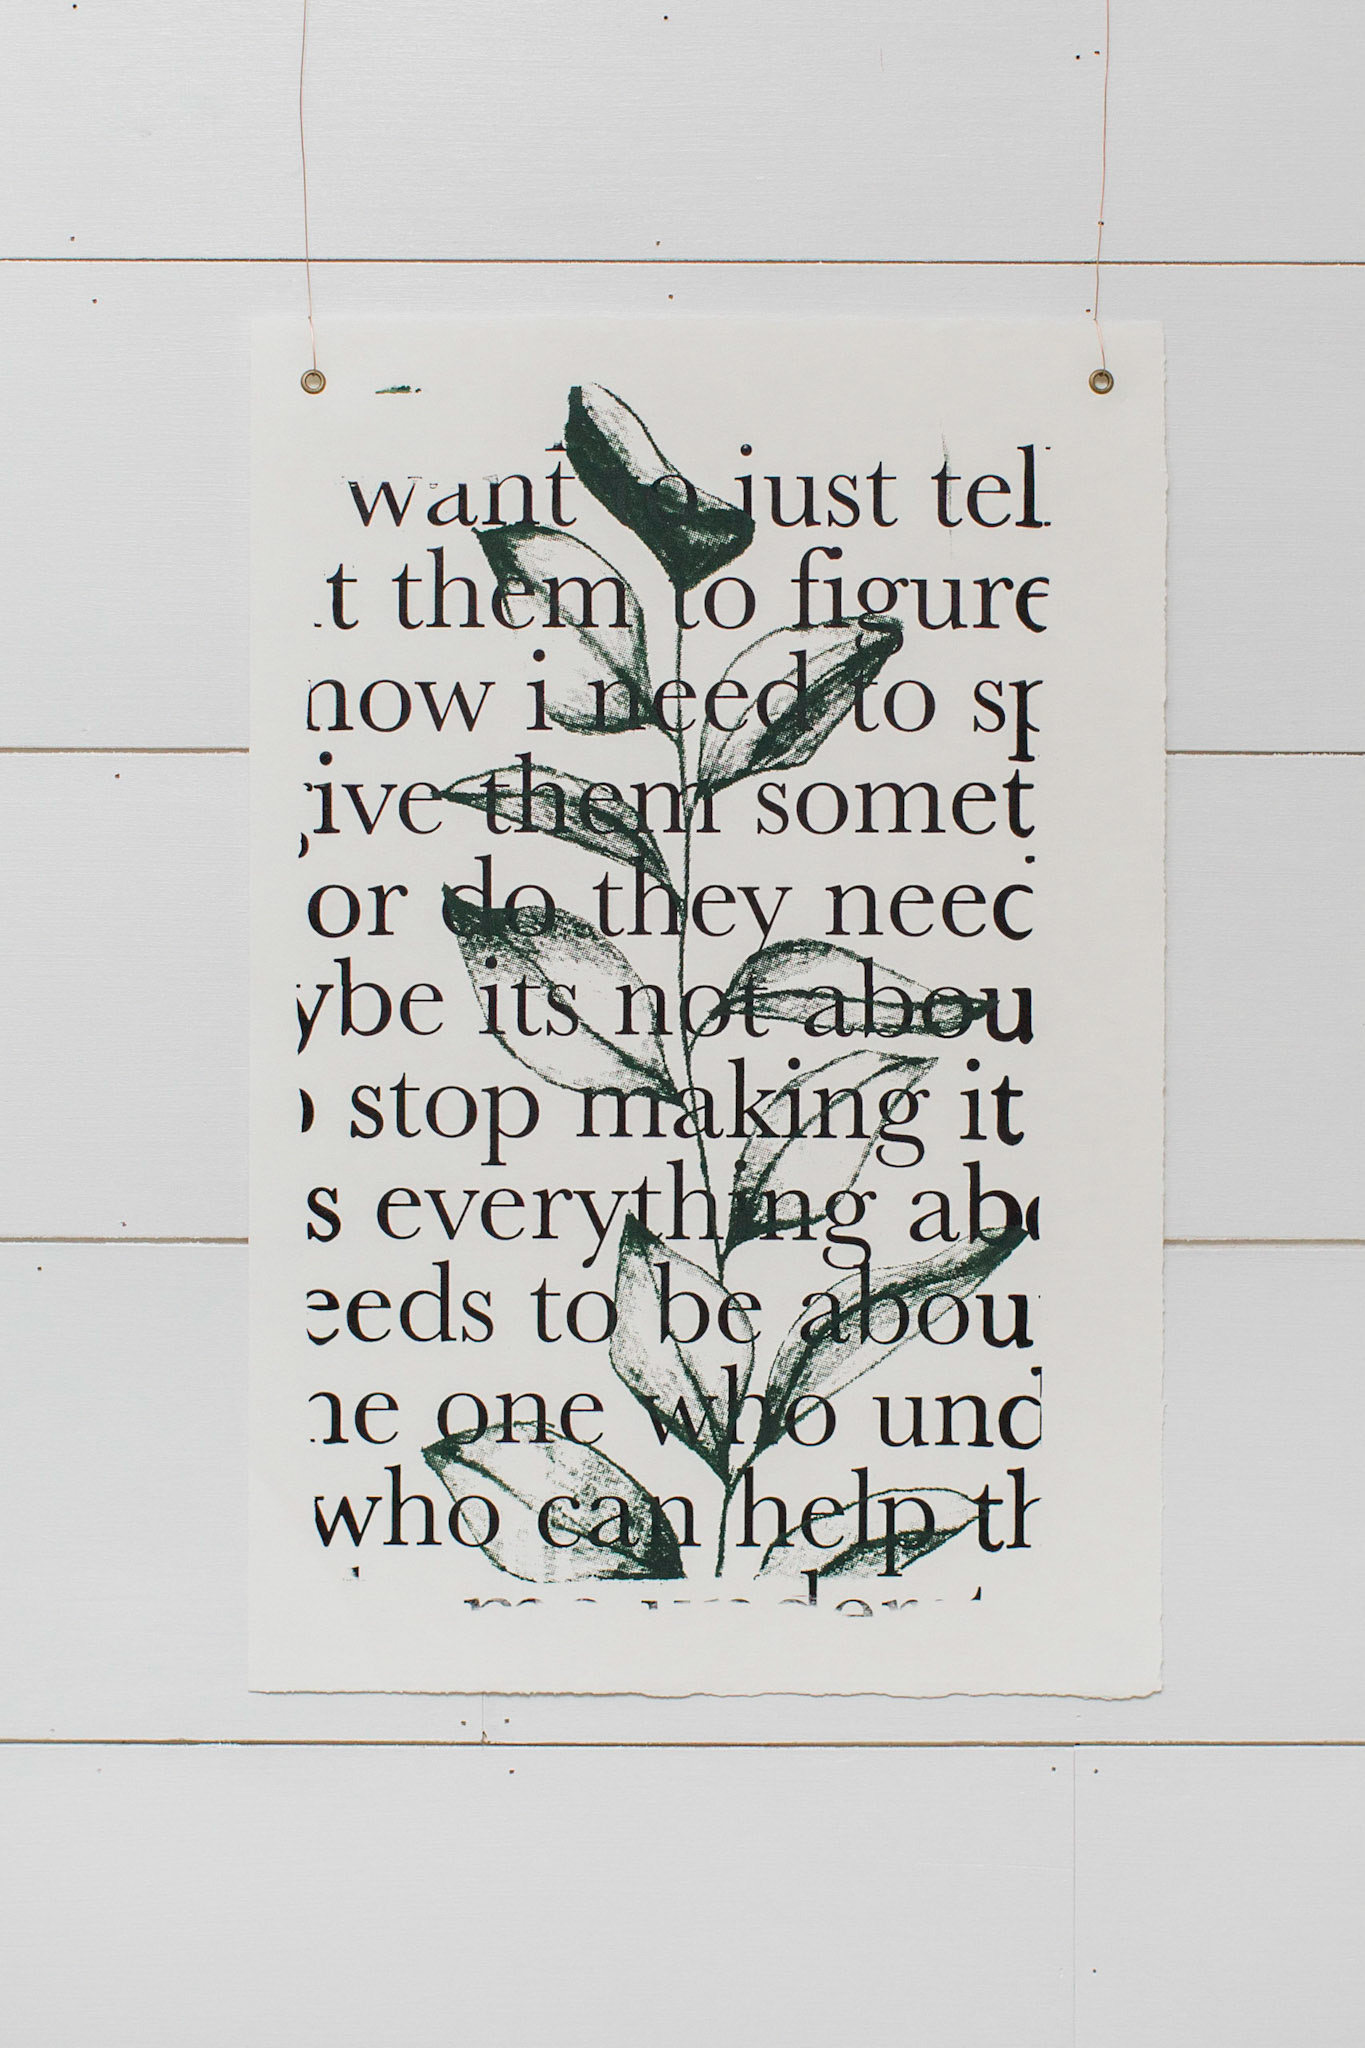 want to just tel
t them to figure
now i need to sp
ive them somet
or do they need
ybe its not abou
stop making it
s everything abo
eeds to be abou
he one who und
who can help th